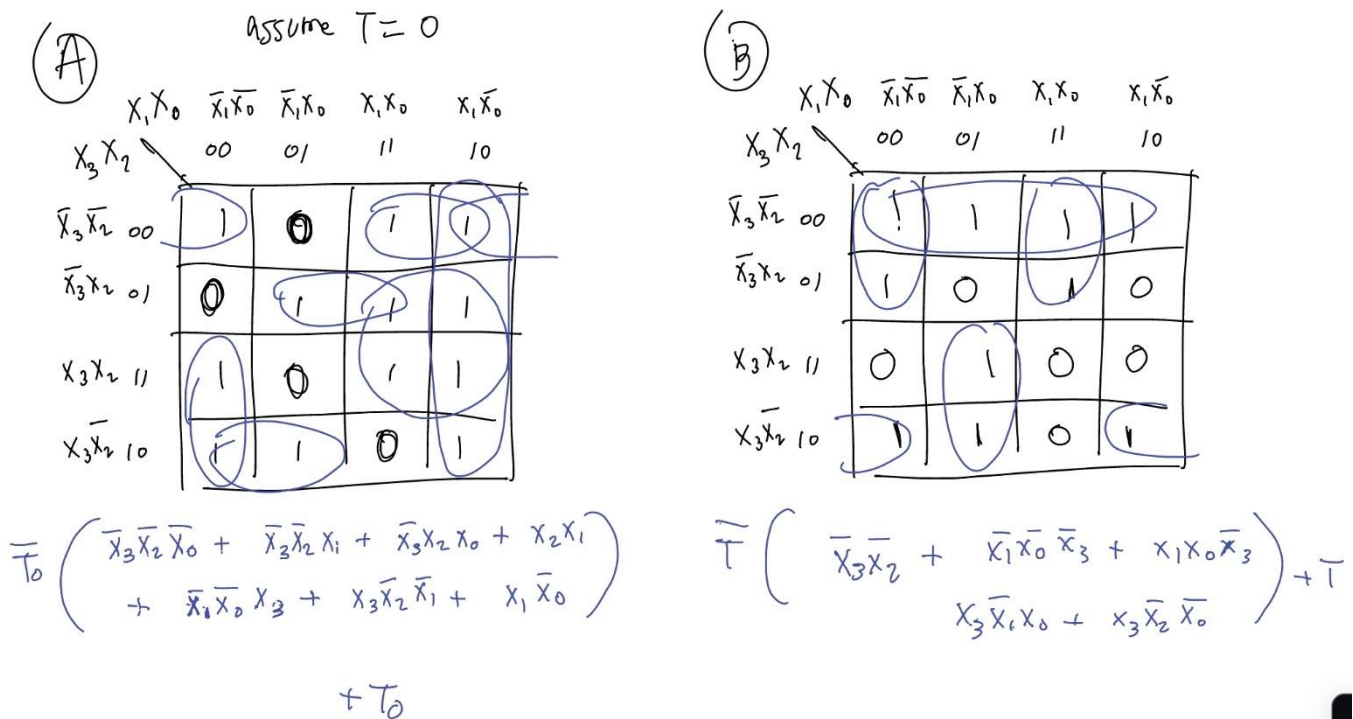 A
assume T = 0
X₁X₀ X̄₁X̄₀ X̄₁X₀ X₁X₀ X₁X̄₀
X₃X₂ 00 01 11 10
X̄₃X̄₂ 00 1 0 1 1
X̄₃X₂ 01 0 1 1 1
X₃X₂ 11 1 0 1 1
X₃X̄₂ 10 1 1 0 1
T̄₀ ( X̄₃X̄₂X̄₀ + X̄₃X̄₂X₁ + X̄₃X₂X₀ + X₂X₁
+ X̄₁X̄₀X₃ + X₃X̄₂X̄₁ + X₁X̄₀ )
+ T₀
B
X₁X₀ X̄₁X̄₀ X̄₁X₀ X₁X₀ X₁X̄₀
X₃X₂ 00 01 11 10
X̄₃X̄₂ 00 1 1 1 1
X̄₃X₂ 01 1 0 1 0
X₃X₂ 11 0 1 0 0
X₃X̄₂ 10 1 1 0 1
T̄ ( X̄₃X̄₂ + X̄₁X̄₀X̄₃ + X₁X₀X̄₃ ) + T
X₃X̄₁X₀ + X₃X̄₂X̄₀